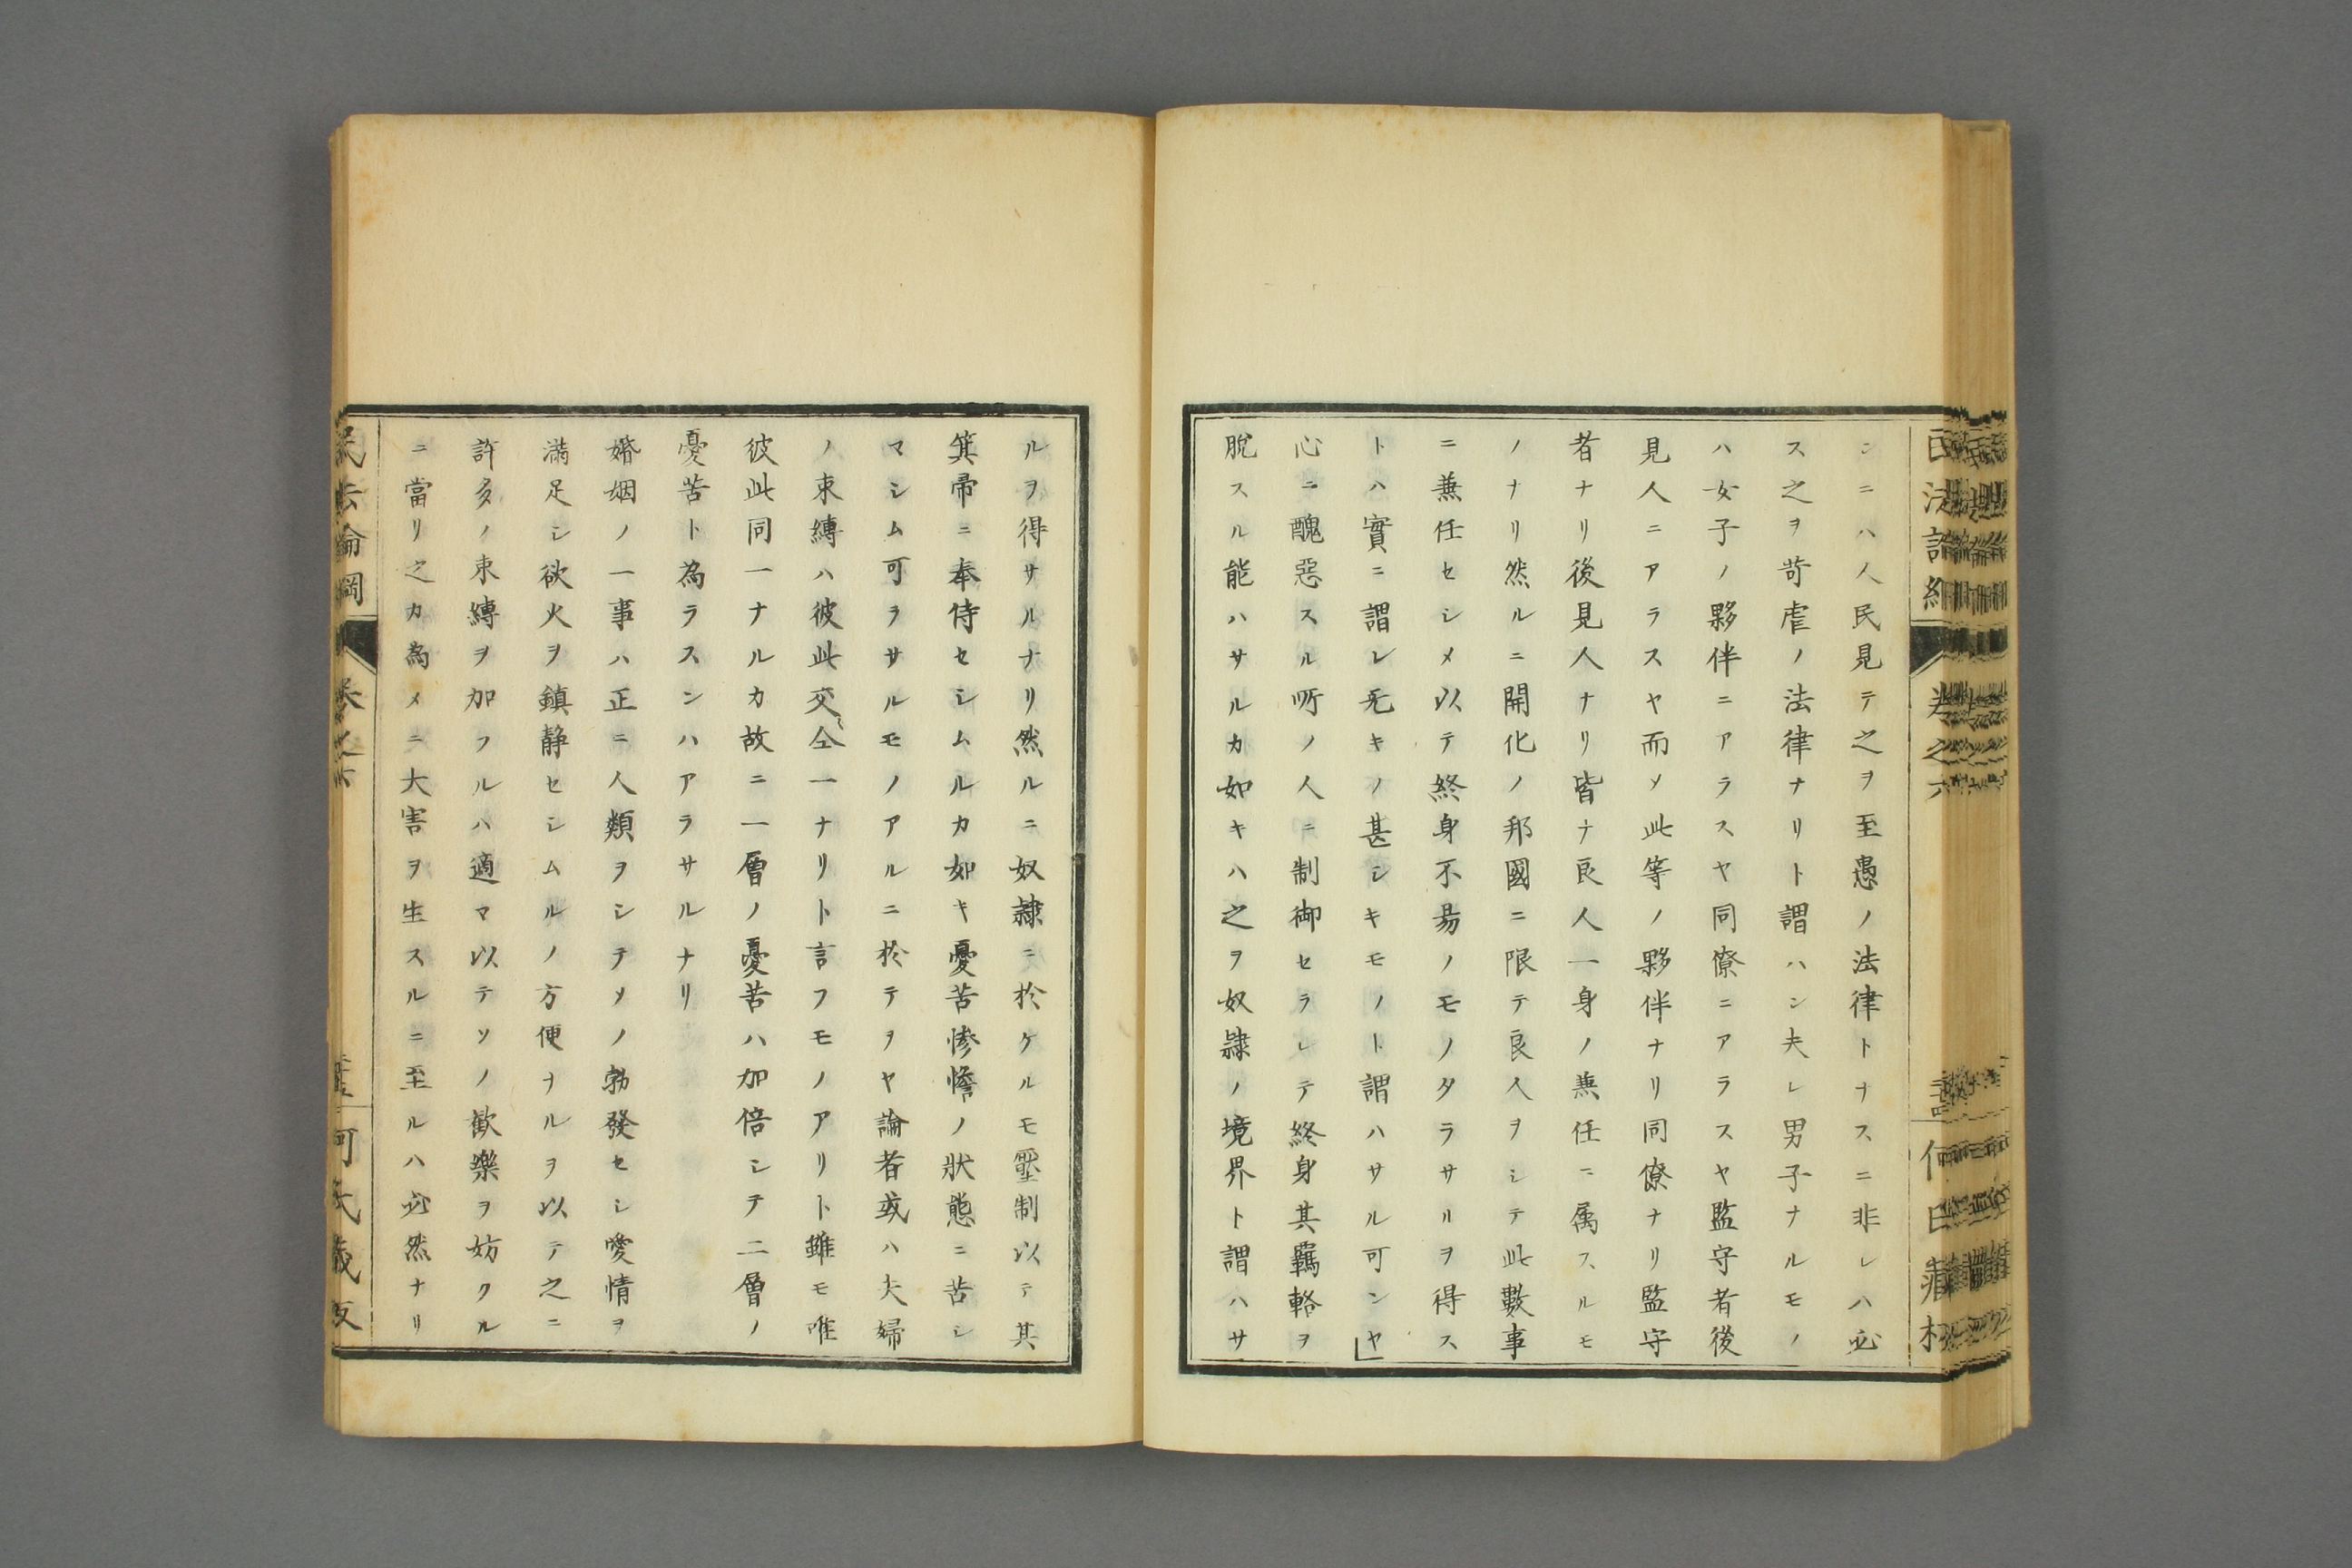 シニハ人民見テ之ヲ至愚ノ法律トナスニ非レハ必
ス之ヲ苛虐ノ法律ナリト謂ハン夫レ男子ナルモノ
ハ女子ノ夥伴ニアラスヤ同僚ニアラスヤ監守者後
見人ニアラスヤ而〆此等ノ夥伴ナリ同僚ナリ監守
者ナリ後見人ナリ皆ナ良人一身ノ兼任ニ属スルモ
ノナリ然ルニ開化ノ邦國ニ限テ良人ヲシテ此數事
ニ兼任セシメ以テ終身不昜ノモノタラサルヲ得ス
トハ實ニ謂レ无キノ甚シキモノト謂ハサル可ンヤ」
心ニ醜惡スル所ノ人ニ制御セラレテ終身其羈輅ヲ
脫スル能ハサルカ如キハ之ヲ奴隷ノ境界ト謂ハサ
ルヲ得サルナリ然ルニ奴隷ニ於ケルモ壓制以テ其
箕帚ニ奉侍セシムルカ如キ憂苦慘憺ノ狀態ニ苦シ
マシム可ラサルモノアルニ於テヲヤ論者或ハ夫婦
ノ束縛ハ彼此交〻仝一ナリト言フモノアリト雖モ唯
彼此同一ナルカ故ニ一層ノ憂苦ハ加倍シテ二層ノ
憂苦ト為ラスンハアラサルナリ
婚姻ノ一事ハ正ニ人類ヲシテ〆ノ勃發セシ愛情ヲ
滿足シ欲火ヲ鎮靜セシムルノ方便ナルヲ以テ之ニ
許多ノ束縛ヲ加フルハ適マ以テソノ歡樂ヲ妨クル
ニ當リ之カ為メニ大害ヲ生スルニ至ルハ必然ナリ
民法論綱
卷之六
何氏藏版